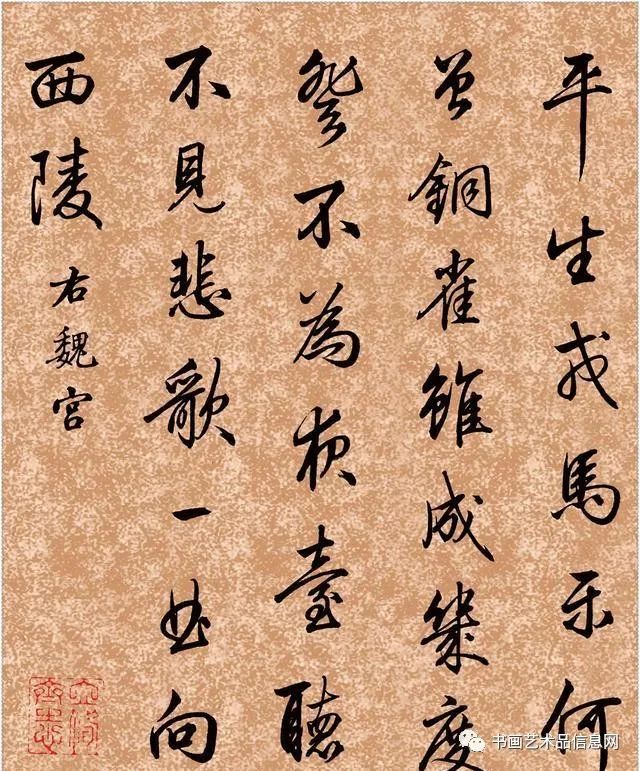 平生戎馬乐何
曾銅雀雖成幾度
登不為夜臺聽
不見悲歌一曲向
西陵
右魏宮
书画艺术品信息网